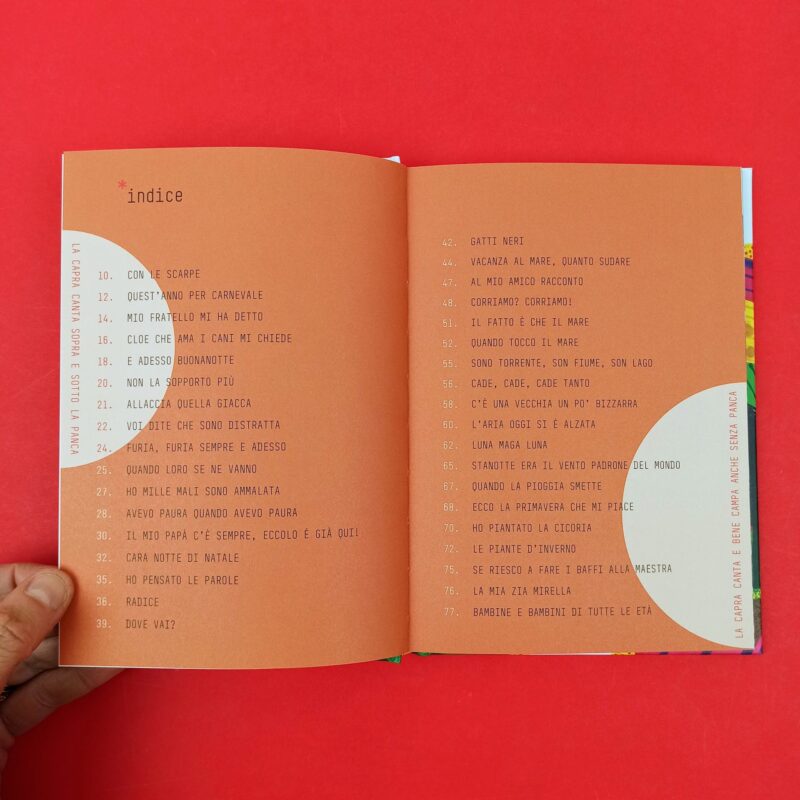 *indice
LA CAPRA CANTA SOPRA E SOTTO LA PANCA
10. CON LE SCARPE
12. QUEST'ANNO PER CARNEVALE
14. MIO FRATELLO MI HA DETTO
16. CLOE CHE AMA I CANI MI CHIEDE
18. E ADESSO BUONANOTTE
20. NON LA SOPPORTO PIÙ
21. ALLACCIA QUELLA GIACCA
22. VOI DITE CHE SONO DISTRATTA
24. FURIA, FURIA SEMPRE E ADESSO
25. QUANDO LORO SE NE VANNO
27. HO MILLE MALI SONO AMMALATA
28. AVEVO PAURA QUANDO AVEVO PAURA
30. IL MIO PAPÀ C'È SEMPRE, ECCOLO É GIÀ QUI!
32. CARA NOTTE DI NATALE
35. HO PENSATO LE PAROLE
36. RADICE
39. DOVE VAI?
42. GATTI NERI
44. VACANZA AL MARE, QUANTO SUDARE
47. AL MIO AMICO RACCONTO
48. CORRIAMO? CORRIAMO!
51. IL FATTO È CHE IL MARE
52. QUANDO TOCCO IL MARE
55. SONO TORRENTE, SON FIUME, SON LAGO
56. CADE, CADE, CADE TANTO
58. C'È UNA VECCHIA UN PO' BIZZARRA
60. L'ARIA OGGI SI È ALZATA
62. LUNA MAGA LUNA
65. STANOTTE ERA IL VENTO PADRONE DEL MONDO
67. QUANDO LA PIOGGIA SMETTE
68. ECCO LA PRIMAVERA CHE MI PIACE
70. HO PIANTATO LA CICORIA
72. LE PIANTE D'INVERNO
75. SE RIESCO A FARE I BAFFI ALLA MAESTRA
76. LA MIA ZIA MIRELLA
77. BAMBINE E BAMBINI DI TUTTE LE ETÀ
LA CAPRA CANTA E BENE CAMPA ANCHE SENZA PANCA